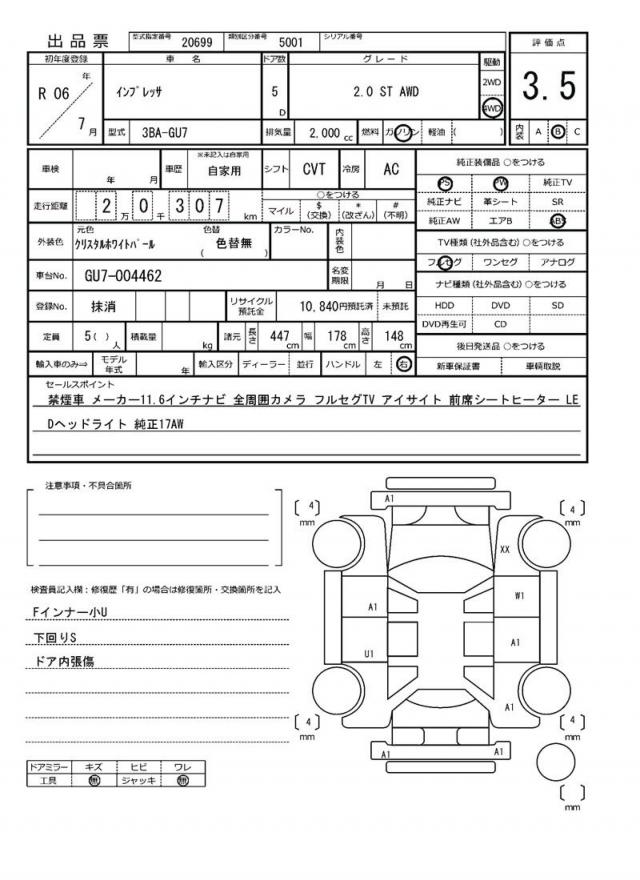 出品票 型式指定番号 20699 類別区分番号 5001 シリアル番号
評価点
3.5
内装 A B C
初年度登録 車名 ドア数 グレード 駆動
R 06 年 7 月
インプレッサ 5 D 2.0 ST AWD 2WD 4WD
型式 3BA-GU7 排気量 2,000 cc 燃料 ガソリン 軽油 ( )
車検 年 月 車歴 ※未記入は自家用 自家用 シフト CVT 冷房 AC
走行距離 2 万 0 千 3 0 7 km
○をつける
マイル $(交換) *(改ざん) #(不明)
外装色 元色 クリスタルホワイトパール 色替 ( 色替無 ) カラーNo. 内装色
車台No. GU7-004462 名変期限 月 日
登録No. 抹消 リサイクル預託金 10,840円預託済 未預託
定員 5( )人 積載量 kg 諸元 長さ 447 cm 幅 178 cm 高さ 148 cm
輸入車のみ⇒ モデル年式 年 輸入区分 ディーラー 並行 ハンドル 左 右
純正装備品 ○をつける
PS PW 純正TV
純正ナビ 革シート SR
純正AW エアB ABS
TV種類(社外品含む)○をつける
フルセグ ワンセグ アナログ
ナビ種類(社外品含む)○をつける
HDD DVD SD
DVD再生可 CD
後日発送品 ○をつける
新車保証書 車輌取説
セールスポイント
禁煙車 メーカー11.6インチナビ 全周囲カメラ フルセグTV アイサイト 前席シートヒーター LE
Dヘッドライト 純正17AW
注意事項・不具合箇所
検査員記入欄：修復歴「有」の場合は修復箇所・交換箇所を記入
Fインナー小U
下回りS
ドア内張傷
ドアミラー キズ ヒビ ワレ
工具 無 ジャッキ 無
A1
[ 4 ] mm
[ 4 ] mm
XX
A1
W1
U1
A1
A1
[ 4 ] mm
[ 4 ] mm
A1 A1
[ ] mm